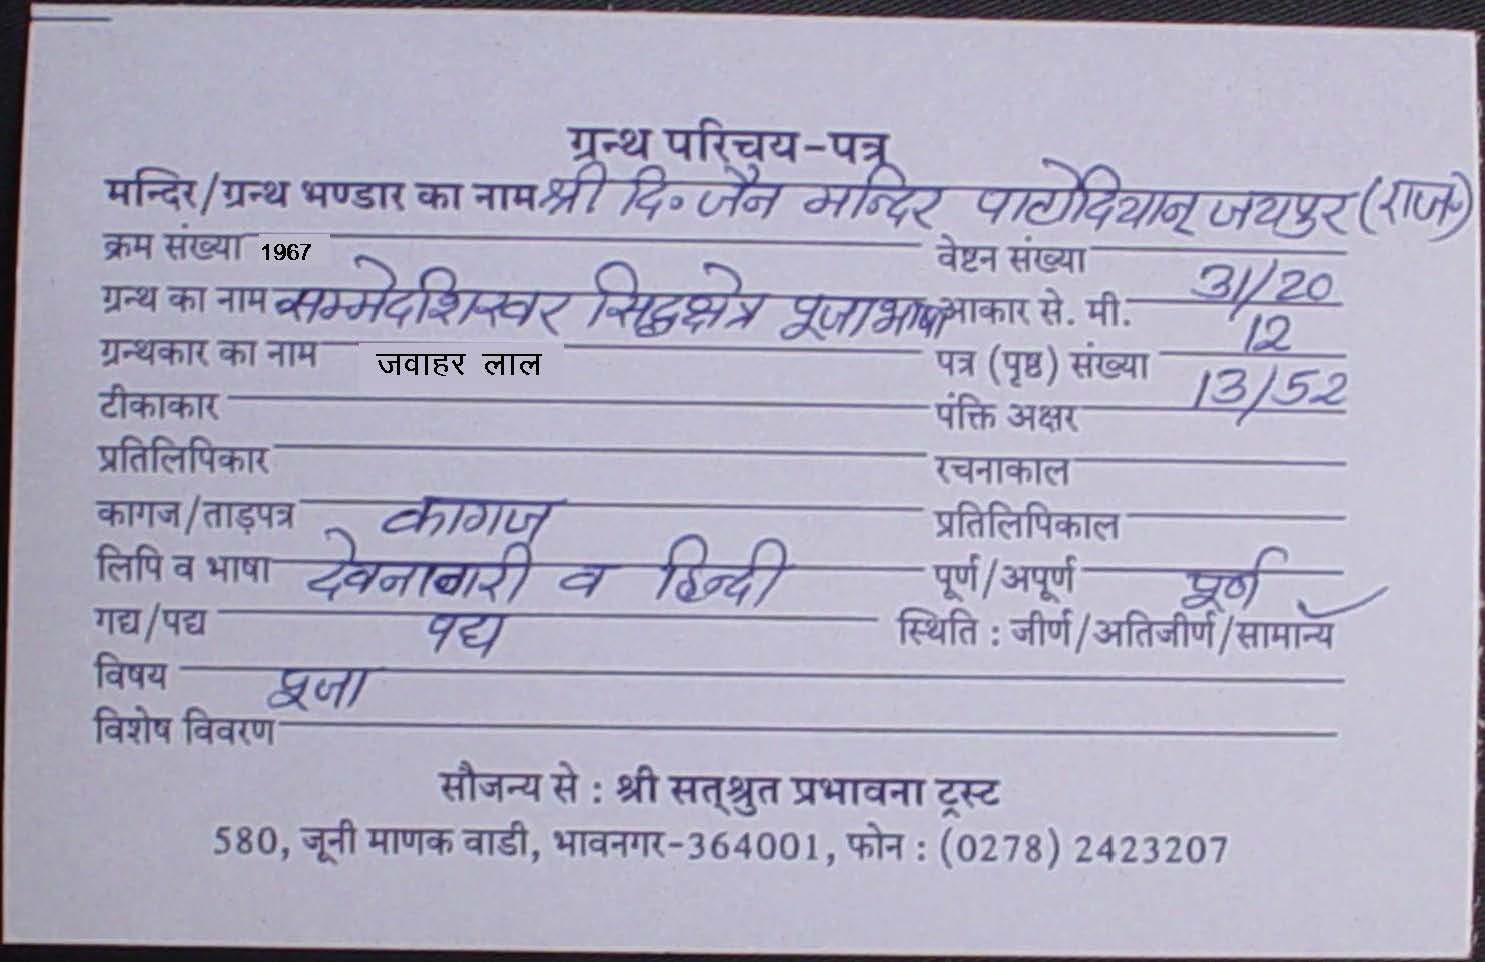 ग्रन्थ परिचय-पत्र
मन्दिर/ग्रन्थ भण्डार का नाम श्री दि० जैन मन्दिर पाटोदियान् जयपुर (राज०)
क्रम संख्या 1967 वेष्टन संख्या
ग्रन्थ का नाम सम्मेदशिखर सिद्धक्षेत्र पूजा भाषा आकार से. मी. 31/20
ग्रन्थकार का नाम जवाहर लाल पत्र (पृष्ठ) संख्या 12
टीकाकार पंक्ति अक्षर 13/52
प्रतिलिपिकार रचनाकाल
कागज/ताड़पत्र कागज प्रतिलिपिकाल
लिपि व भाषा देवनागरी व हिन्दी पूर्ण/अपूर्ण पूर्ण
गद्य/पद्य पद्य स्थिति : जीर्ण/अतिजीर्ण/सामान्य
विषय पूजा
विशेष विवरण
सौजन्य से : श्री सत्श्रुत प्रभावना ट्रस्ट
580, जूनी माणक वाडी, भावनगर-364001, फोन : (0278) 2423207